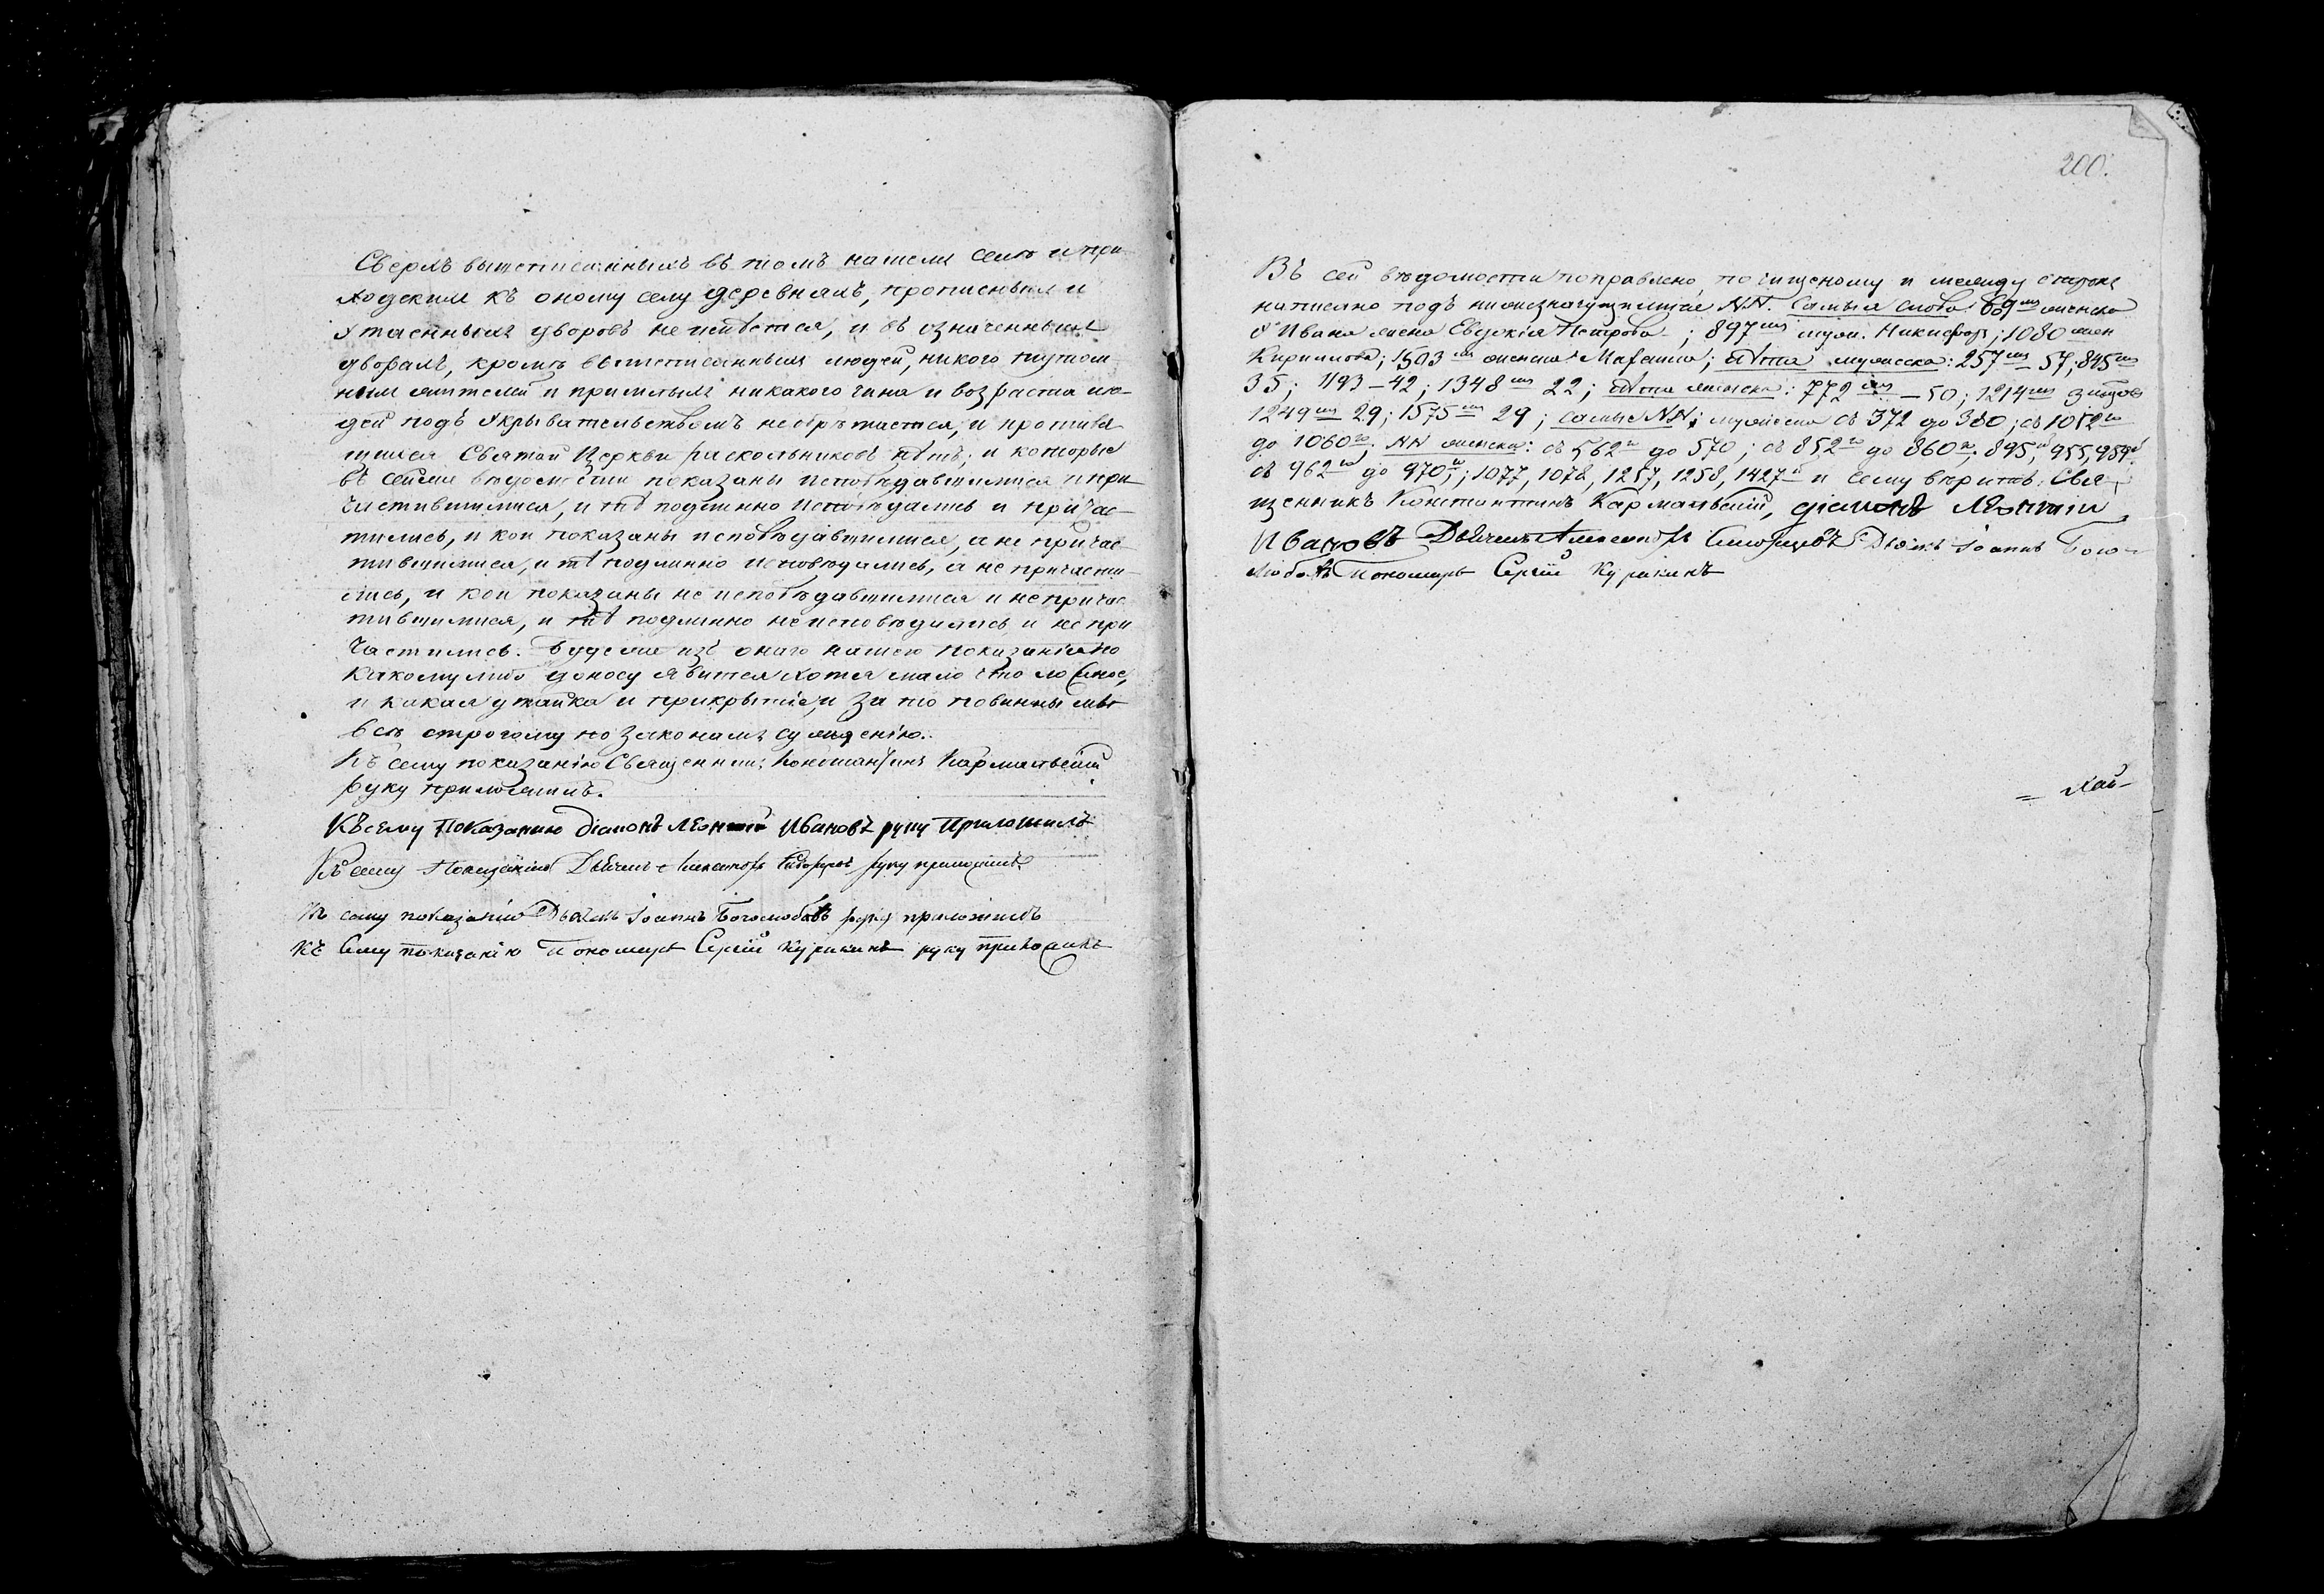 Сверхъ вышеписанныхъ въ томъ нашемъ селѣ и при-
ходскимъ къ оному селу деревнямъ, прописныхъ и
утаенныхъ дворовъ не имѣется, и въ означенныхъ
дворахъ, кромѣ вышеписанныхъ людей, никого тутош-
нихъ жителей и пришлыхъ никакого чина и возраста лю-
дей подъ укрывательствомъ не обрѣтается, и противя-
щихся Святой Церкви раскольниковъ нѣтъ; и которые
въ сей вѣдомости показаны исповѣдавшимися и при-
частившимися, и тѣ подлинно исповѣдались и причас-
тились, и кои показаны исповѣдавшимися, а не причас-
тившимися, и тѣ подлинно исповѣдались, а не причасти-
лись, и кои показаны не исповѣдавшимися и не причас-
тившимися, и тѣ подлинно не исповѣдались и не при
частились. Буде же изъ онаго нашего показанія по
какому либо доносу явится хотя мало что ложное,
и какая утайка и прикрытіе, и за то повинны мы
всѣ строгому по законамъ сужденію.
Къ сему показанію Священникъ Константинъ Кармальскій
руку приложилъ.
Къ сему показанию діаконъ Леонтій Ивановъ руку Приложилъ
Къ сему Показанію Дьячекъ Александръ руку приложилъ
Къ сему показанію Дьячекъ Іоаннъ Боголюбовъ руку приложилъ
Къ Сему показанію Пономарь Сергій Куракинъ руку приложилъ
200.
Въ сей вѣдомости поправлено по чищеному и между строкъ
написано подъ нижеслѣдующими NN. Самыя слова: женска
у Ивана жена Евдокія Петрова; 897 муж. Никифоръ; 1080 жен
Кирилова; 1503 женска Марѳина; лѣта мужеска: 257 57, 845
35; 1193 – 42; 1348 22; лѣта женска: 772 – 50; 1214
1249 29; 1575 29; самые NN: мужеска съ 372 до 380; съ 1052
до 1060; NN женска: съ 562 до 570; съ 852 до 860, 895, 955, 959
съ 962 до 970; 1077, 1078, 1257, 1258, 1427 и сему вѣрить. Свя-
щенникъ Константинъ Кармальскій, діаконъ Леонтій
Ивановъ Дьячекъ Александръ Дьячекъ Іоаннъ Бого-
любовъ Пономарь Сергій Куракинъ